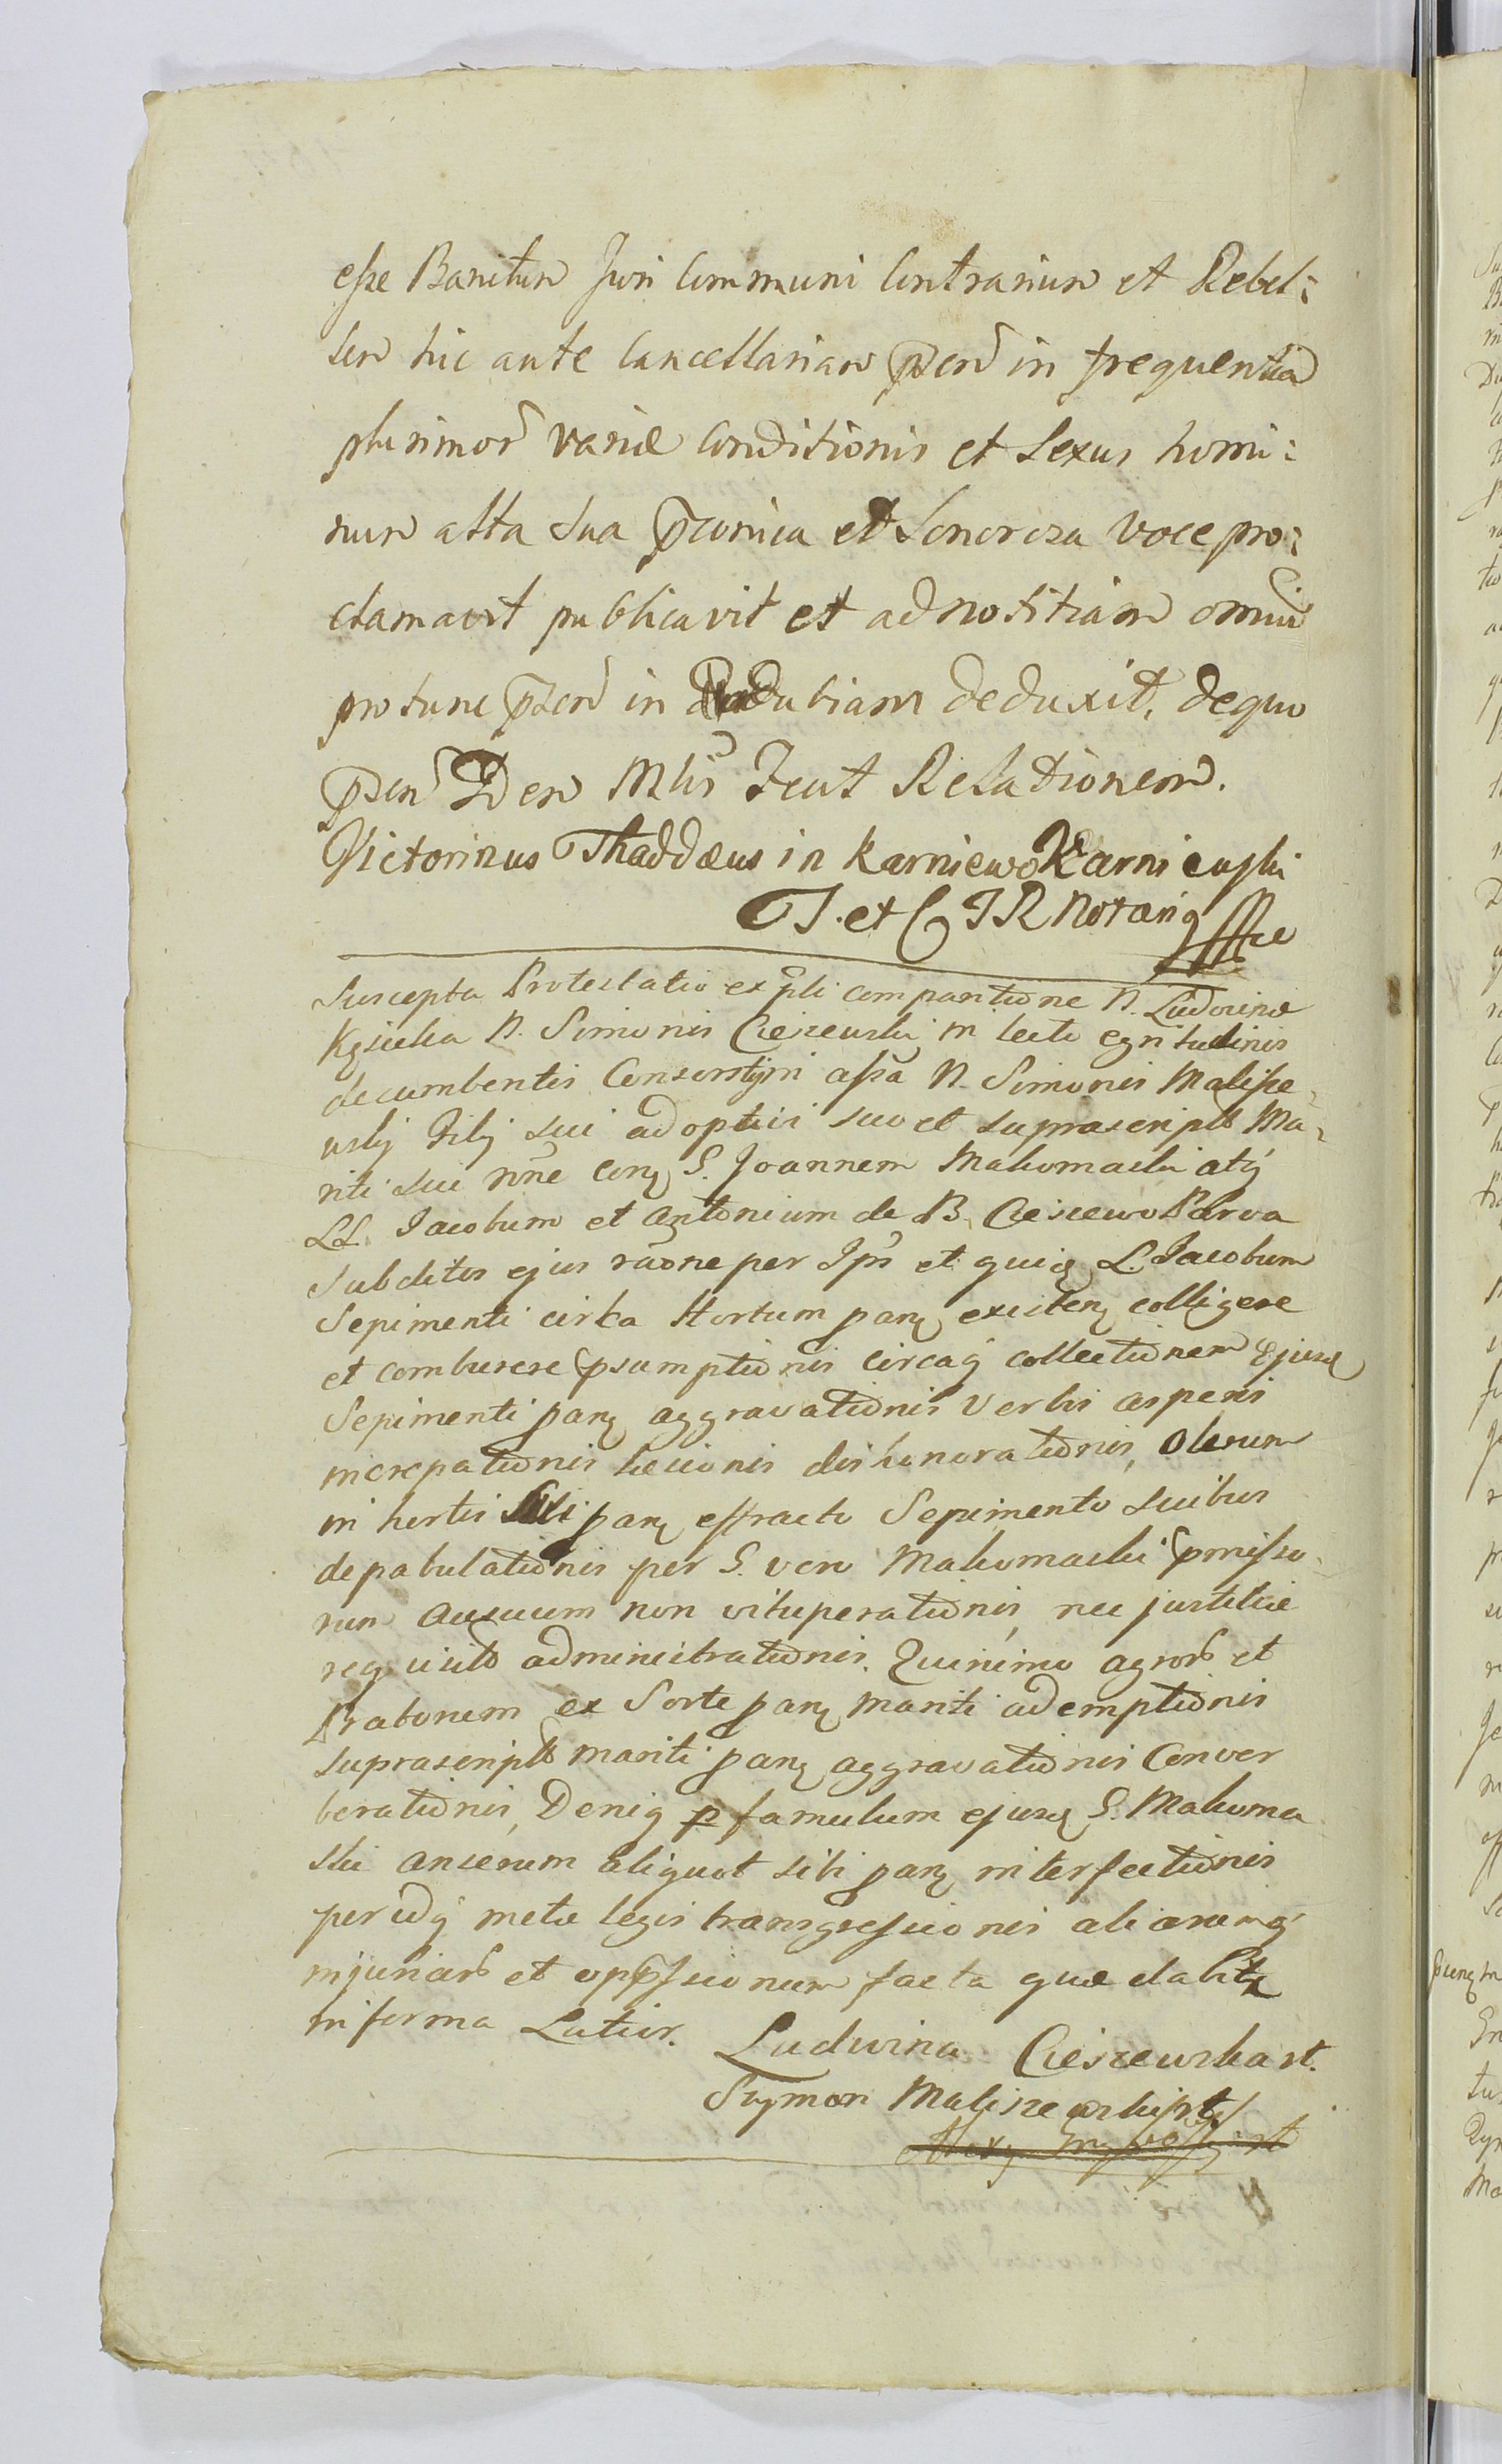 esse Banitum Juri Communi Contrarium et Rebel:
lem hic ante Cancellariam p̃zem̃ in frequentia
plurimor̃ variæ Conditionis et Sexus homi:
num alta sua p̃conica et Sonorosa voce pro:
clamavit publicavit et ad notitiam omniũ
pro tunc p̃zem̃ in deduxit, de quo
p̃zen̄ Iden Mlis̃ Fecit Relationem.
Victorinus Thaddæus in Karniewo Karniewski
T. et C J R Notarig
Suscepta Protestatio ex p̃li comparitione N. Ludovinæ
N. Simonis Ciesewski in lecto egritudinis
decumbentis Consortis in assã N. Simonis Malisze,
wskj Filj sui adoptivi suo et suprascripti Ma,
riti sui nõne Conq S. Joannem Makomaski atq́
LL. Jacobum et Antonium de B. Ciescewo Parva
Subditos ejus raõne per Ips̃ et quiq L. Jacobum
Sepimenti cirka Hortum parq existenq colligere
et comburere p̃sumptionis circaq́ collectionem Ejusq
Sepimenti parq aggravationis verbis asperis
increpationis læsionis dishonorationis, Olerum
in hortis sibi parq effracto Sepimento Suibus
depabulationis per S. vero Makomaski p̃misso,
rum Ausuum non vituperationis, nec justitiæ
requisito administrationis. Quinimo agror̃ et
Pratorum ex Sorte parq Mariti ademptionis
suprascripti mariti parq aggravationis Conver
berationis, Deniq p̱ famulum ejusq S. Makoma
ski anserum aliquot sibi parq interfectionis
peridq́ metæ legis transgressionis aliarumq́
injuriar̃ et opp̃ssionum facta quæ dabitr
in forma Latior.
Ludwina Ciesewska st.
Szymon Maliszewski st